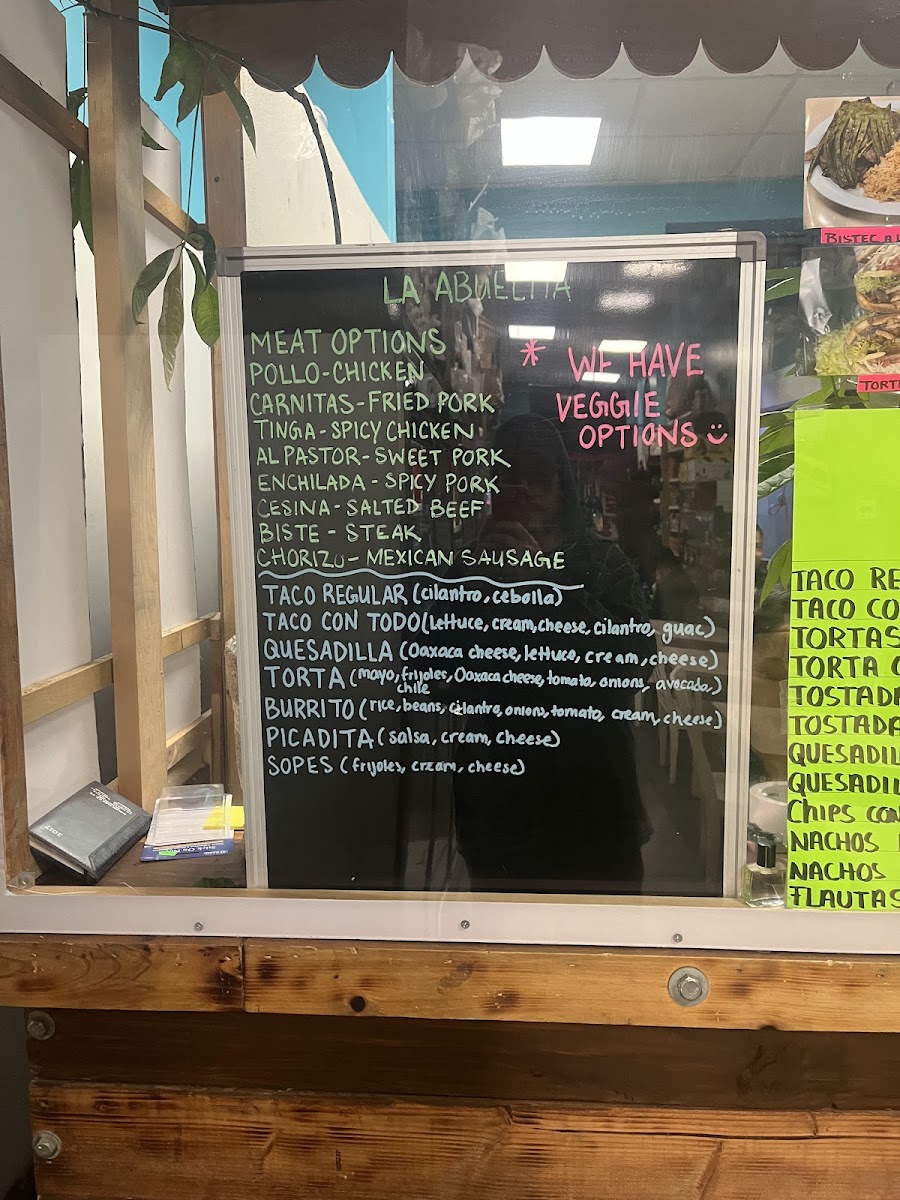 LA ABUELITA
MEAT OPTIONS
POLLO-CHICKEN
CARNITAS-FRIED PORK
TINGA-SPICY CHICKEN
AL PASTOR-SWEET PORK
ENCHILADA-SPICY PORK
CESINA-SALTED BEEF
BISTE - STEAK
CHORIZO- MEXICAN SAUSAGE
* WE HAVE
VEGGIE
OPTIONS
TACO REGULAR (cilantro, cebolla)
TACO CON TODO (Lettuce, cream, cheese, cilantro, guac)
QUESADILLA (Oaxaca cheese, lettuce, cream, cheese)
TORTA (mayo, frijoles, Oaxaca cheese, tomato, onions, avocado,)
chile
BURRITO (rice, beans, cilantro, onions, tomato, cream, cheese]
PICADITA (salsa, cream, cheese)
SOPES (frijoles, cream, cheese)
2017
BISTEC A L
TORT
TACO RE
TACO CO
TORTAS
TORTA
TOSTADA
TOSTADA
QUESADIL
QUESADIL
Chips CON
NACHOS
NACHOS
FLAUTAS